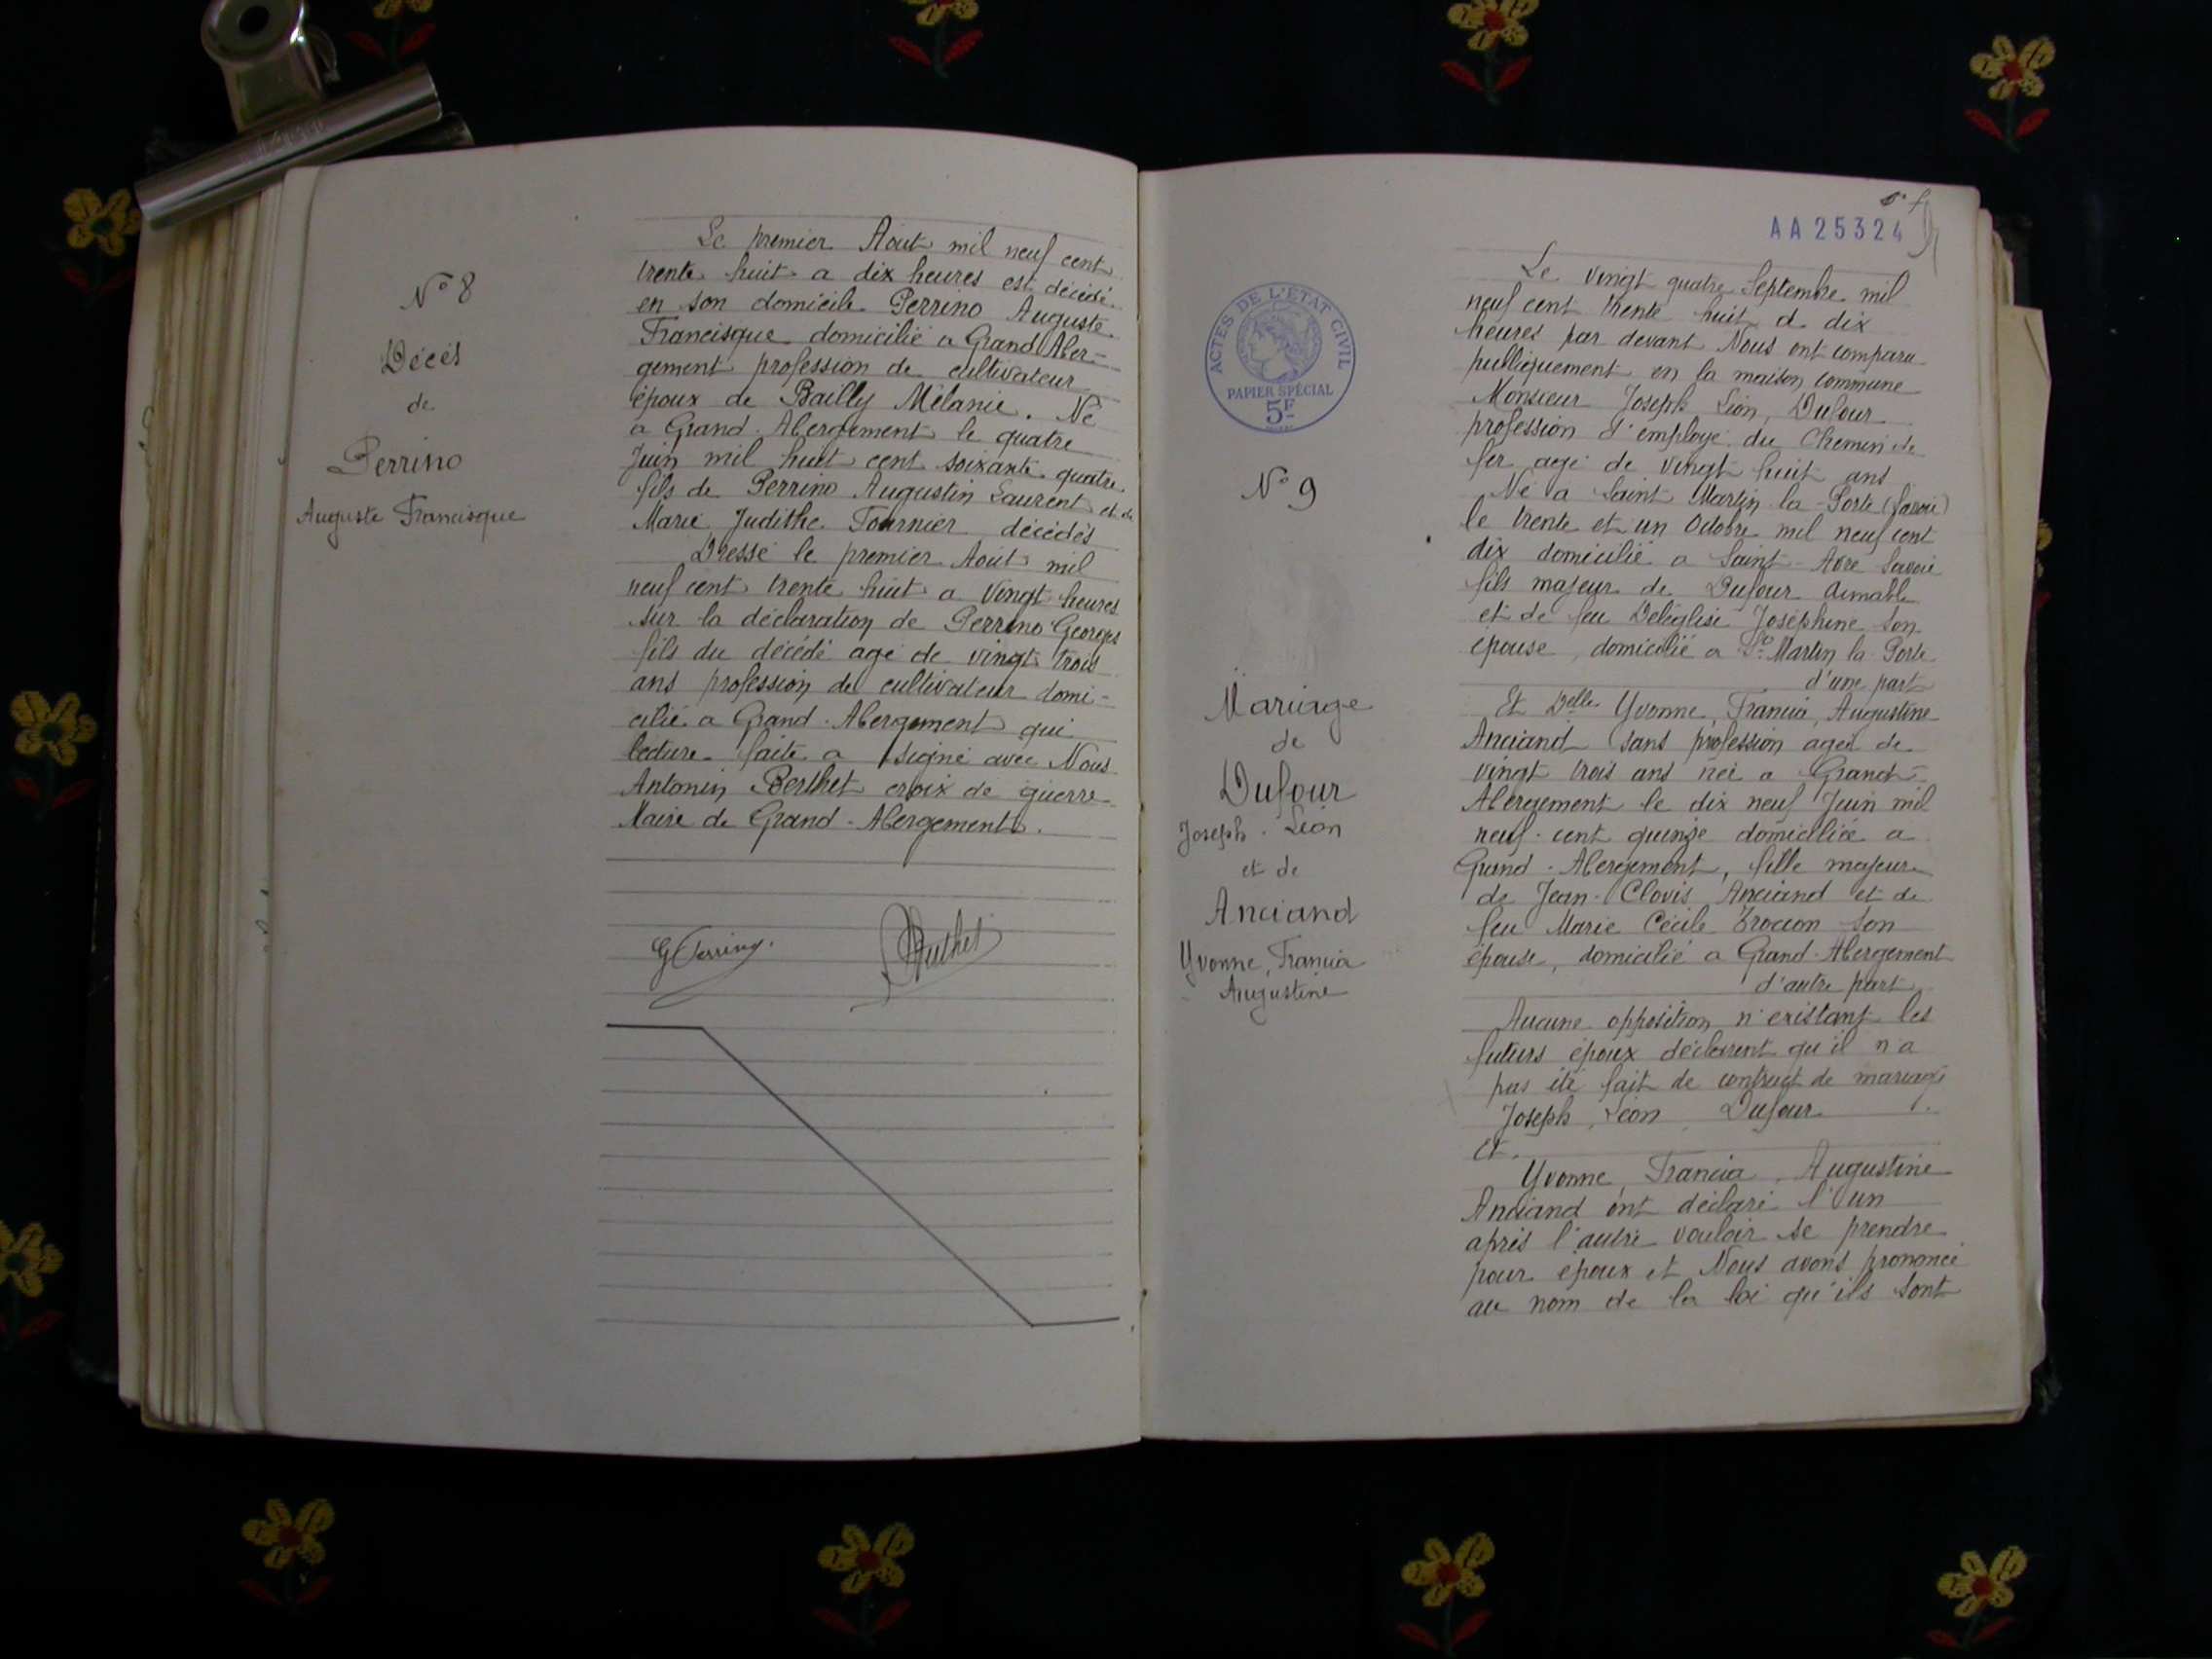 N° 8
Décès
de
Perrino
Auguste Francisque
Le premier Aout mil neuf cent
trente huit a dix heures est décédé
en son domicile Perrino Auguste
Francisque domicilié a Grand Aber-
gement profession de cultivateur
époux de Bailly Mélanie. Né
a Grand-Abergement le quatre
Juin mil huit cent soixante quatre
fils de Perrino Augustin Laurent et de
Marie Judithe Tournier décédés
Dressé le premier Aout mil
neuf cent trente huit a vingt heures
sur la déclaration de Perrino Georges
fils du décédé agé de vingt trois
ans profession de cultivateur domi-
cilié a Grand-Abergement qui
lecture faite a signé avec Nous
Antonin Berthet croix de guerre
Maire de Grand-Abergement.
G Perrino.
Berthet
AA25324
ACTES DE L'ÉTAT CIVIL
PAPIER SPÉCIAL
5F
N° 9
Mariage
de
Dufour
Joseph-Léon
et de
Anciand
Yvonne, Francia
Augustine
Le vingt quatre Septembre mil
neuf cent trente huit a dix
heures par devant Nous ont comparu
publiquement en la maison commune
Monsieur Joseph Léon, Dufour
profession d'employé du Chemin de
fer agé de vingt huit ans
Né a Saint Martin la-Porte (Savoie)
le trente et un Octobre mil neuf cent
dix domicilié a Saint-Avre Savoie
fils majeur de Dufour Aimable
et de feu Deléglise Joséphine son
épouse, domicilié a St Martin la Porte
d'une part
Et Delle Yvonne, Francia, Augustine
Anciand sans profession ageé de
vingt trois ans neé a Grand-
Abergement le dix neuf Juin mil
neuf-cent quinze domiciliée a
Grand-Abergement, fille majeure
de Jean-Clovis Anciand et de
feu Marie Cécile Troccon son
épouse, domicilié a Grand-Abergement
d'autre part
Aucune opposition n'existant les
futurs époux déclarent qu'il n'a
pas été fait de contract de mariage
Joseph, Léon, Dufour.
Et.
Yvonne, Francia, Augustine
Anciand ont déclaré l'un
après l'autre vouloir se prendre
pour époux et Nous avons prononcé
au nom de la loi qu'ils sont